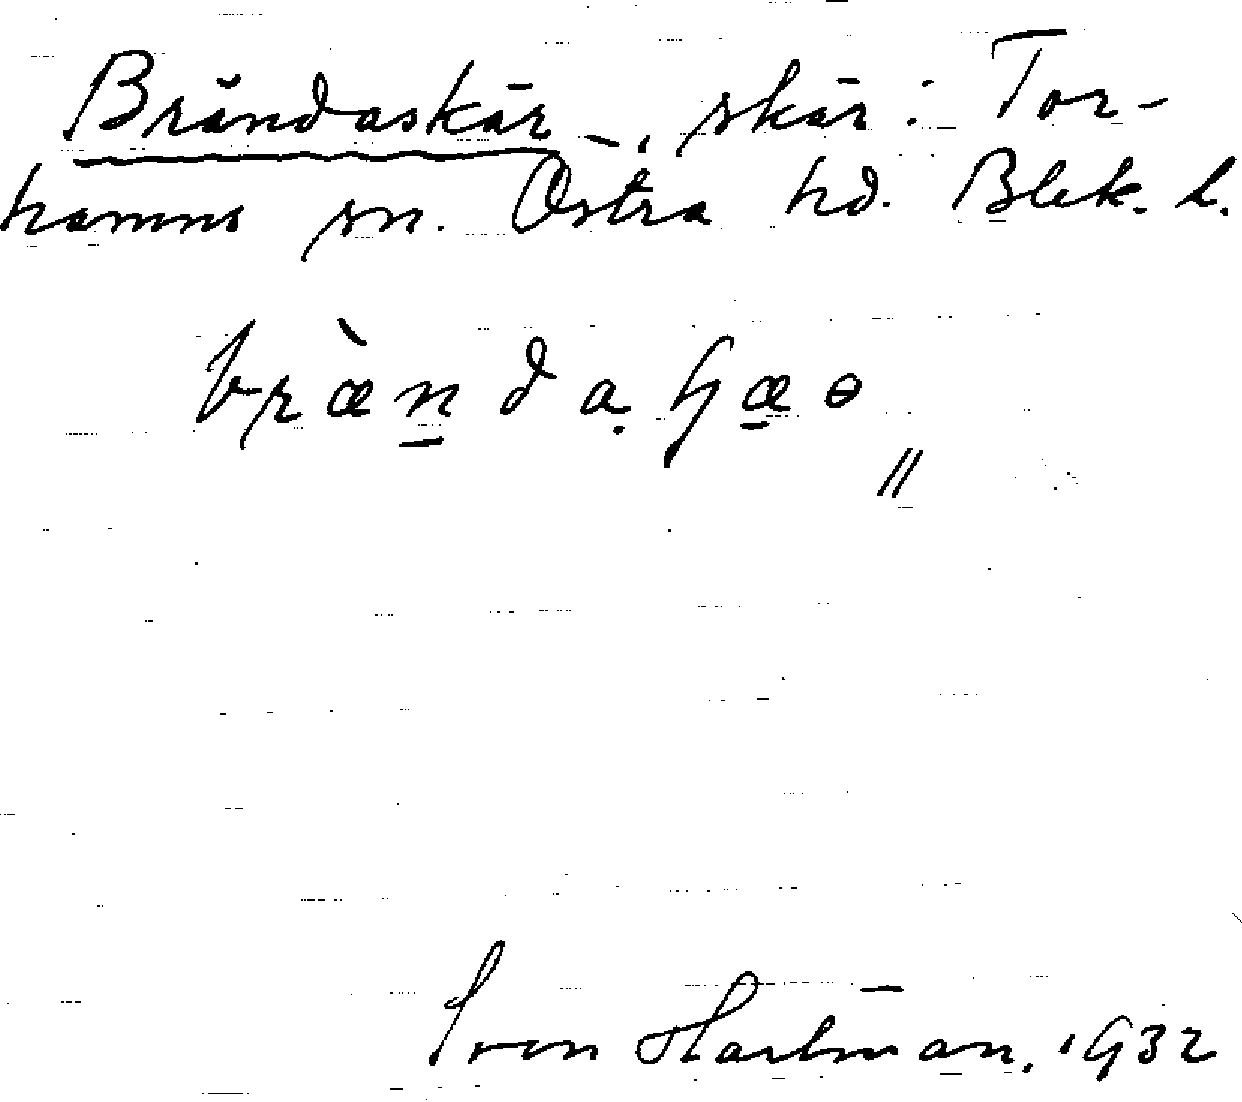 Brändaskär, skär: Tor-
hamns sn. Östra hd. Blek. l.
Sven Hartman. 1932